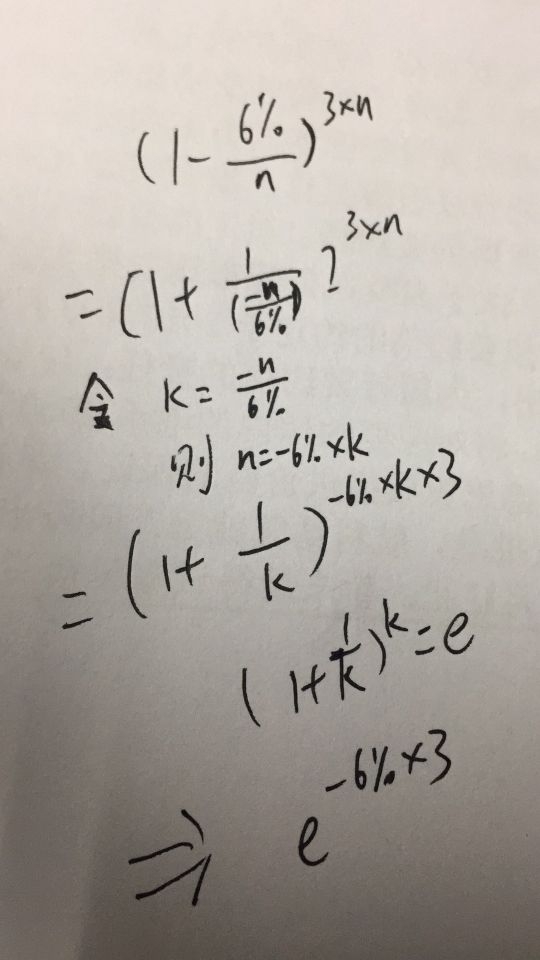 (1 - 6%/n)^{3×n}
= (1 + 1/(-n/6%))^{3×n}
令 k = -n/6%
则 n = -6% × k
= (1 + 1/k)^{-6% × k × 3}
(1 + 1/k)^k = e
⇒ e^{-6% × 3}